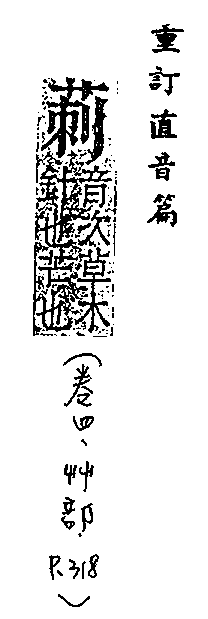 重訂直音篇
莿
音次草木
針也芒也
(卷四、艸部, P.318)